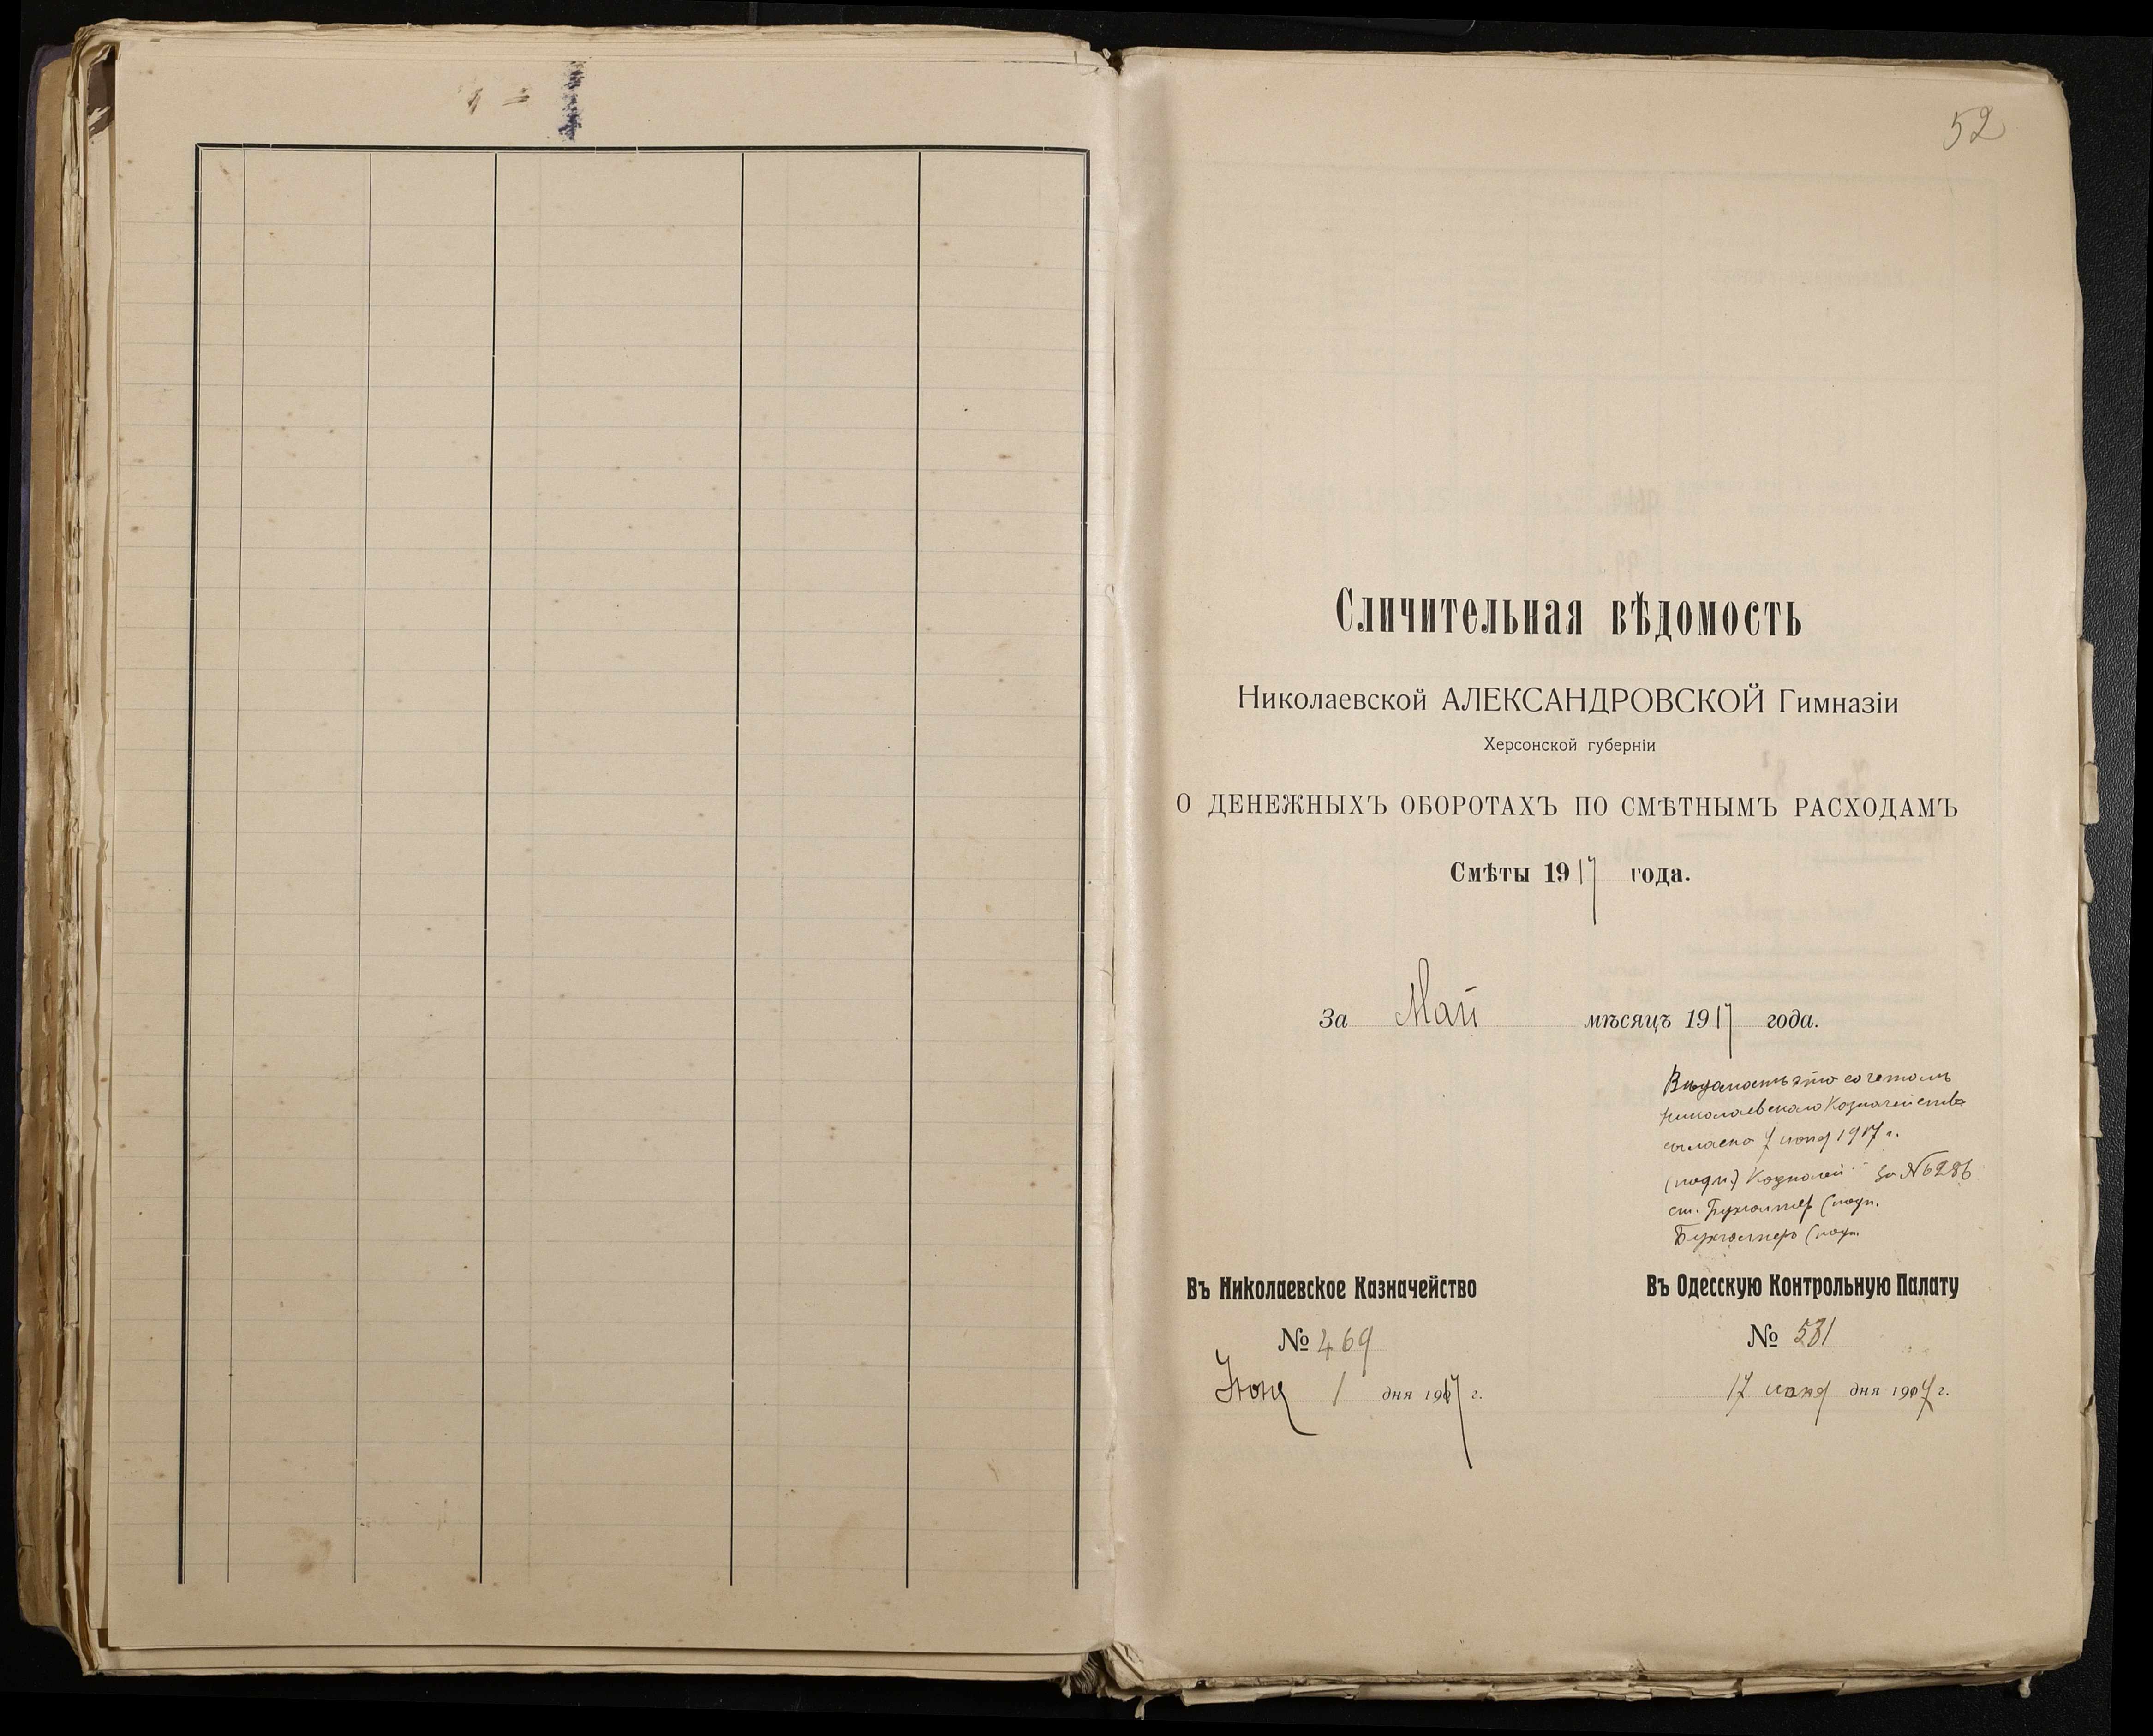 52
Сличительная вѣдомость
Николаевской АЛЕКСАНДРОВСКОЙ Гимназіи
Херсонской губерніи
О ДЕНЕЖНЫХЪ ОБОРОТАХЪ ПО СМѢТНЫМЪ РАСХОДАМЪ
Смѣты 1917 года.
За Май мѣсяцъ 1917 года.
Вѣдомость эта со счетомъ
Николаевскаго Казначейства
согласна 7 іюня 1917 г.
(подп.) Казначей за № 6286
ст. Бухгалтер (подп.
Бухгалтеръ (подп.
Въ Николаевское Казначейство
№ 469
Іюня 1 дня 1917 г.
Въ Одесскую Контрольную Палату
№ 531
17 іюня дня 1917 г.